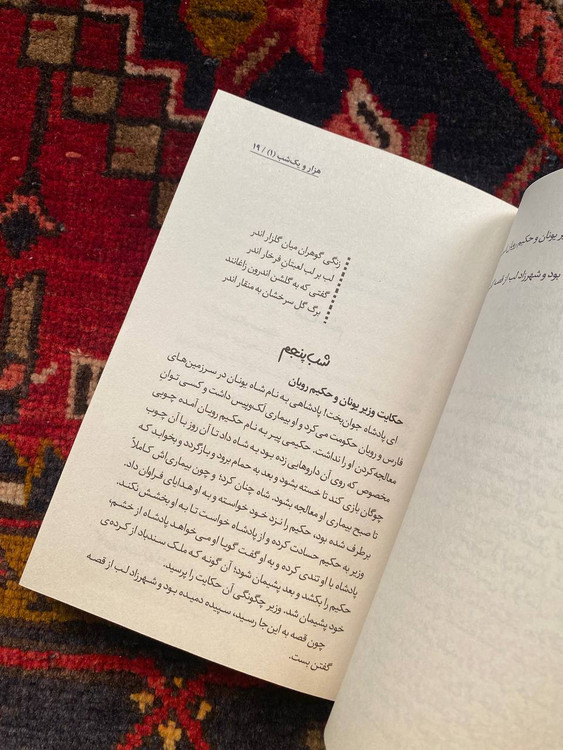 هزار و یک‌شب (۱) / ۱۹
زنگی گوهران میان گلزار اندر
لب بر لب لعبتان فرخار اندر
گفتی که به گلشن اندرون زاغانند
برگ گل سرخشان به منقار اندر
شب پنجم
حکایت وزیر یونان و حکیم رویان
ای پادشاه جوان‌بخت! پادشاهی به نام شاه یونان در سرزمین‌های
فارس و رویان حکومت می‌کرد و او بیماری لک‌وپیس داشت و کسی توانِ
معالجه‌کردن او را نداشت. حکیمی پیر به نام حکیم رویان آمده چوبی
مخصوص که روی آن داروهایی زده بود به شاه داد تا آن روز با آن چوب
چوگان بازی کند تا خسته بشود و بعد به حمام برود و بازگردد و بخوابد که
تا صبح بیماری او معالجه بشود. شاه چنان کرد؛ و چون بیماری‌اش کاملاً
برطرف شده بود، حکیم را نزد خود خواسته و به او هدایای فراوان داد.
وزیر به حکیم حسادت کرده و از پادشاه خواست تا به او بخشش نکند.
پادشاه با او تندی کرده و به او گفت گویا او می‌خواهد پادشاه از خشم،
حکیم را بکشد و بعد پشیمان شود؛ آن گونه که ملک سندباد از کرده‌ی
خود پشیمان شد. وزیر چگونگی آن حکایت را پرسید.
چون قصه به این‌جا رسید، سپیده دمیده بود و شهرزاد لب از قصه
گفتن بست.
یر یونان و حکیم رویان
بود و شهرزاد لب از قصه